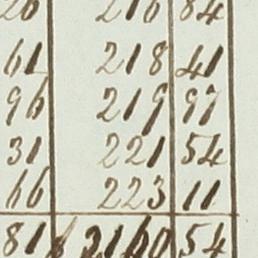 26 216 84
61 218 41
96 219 97
31 221 54
66 223 11
81 3160 54